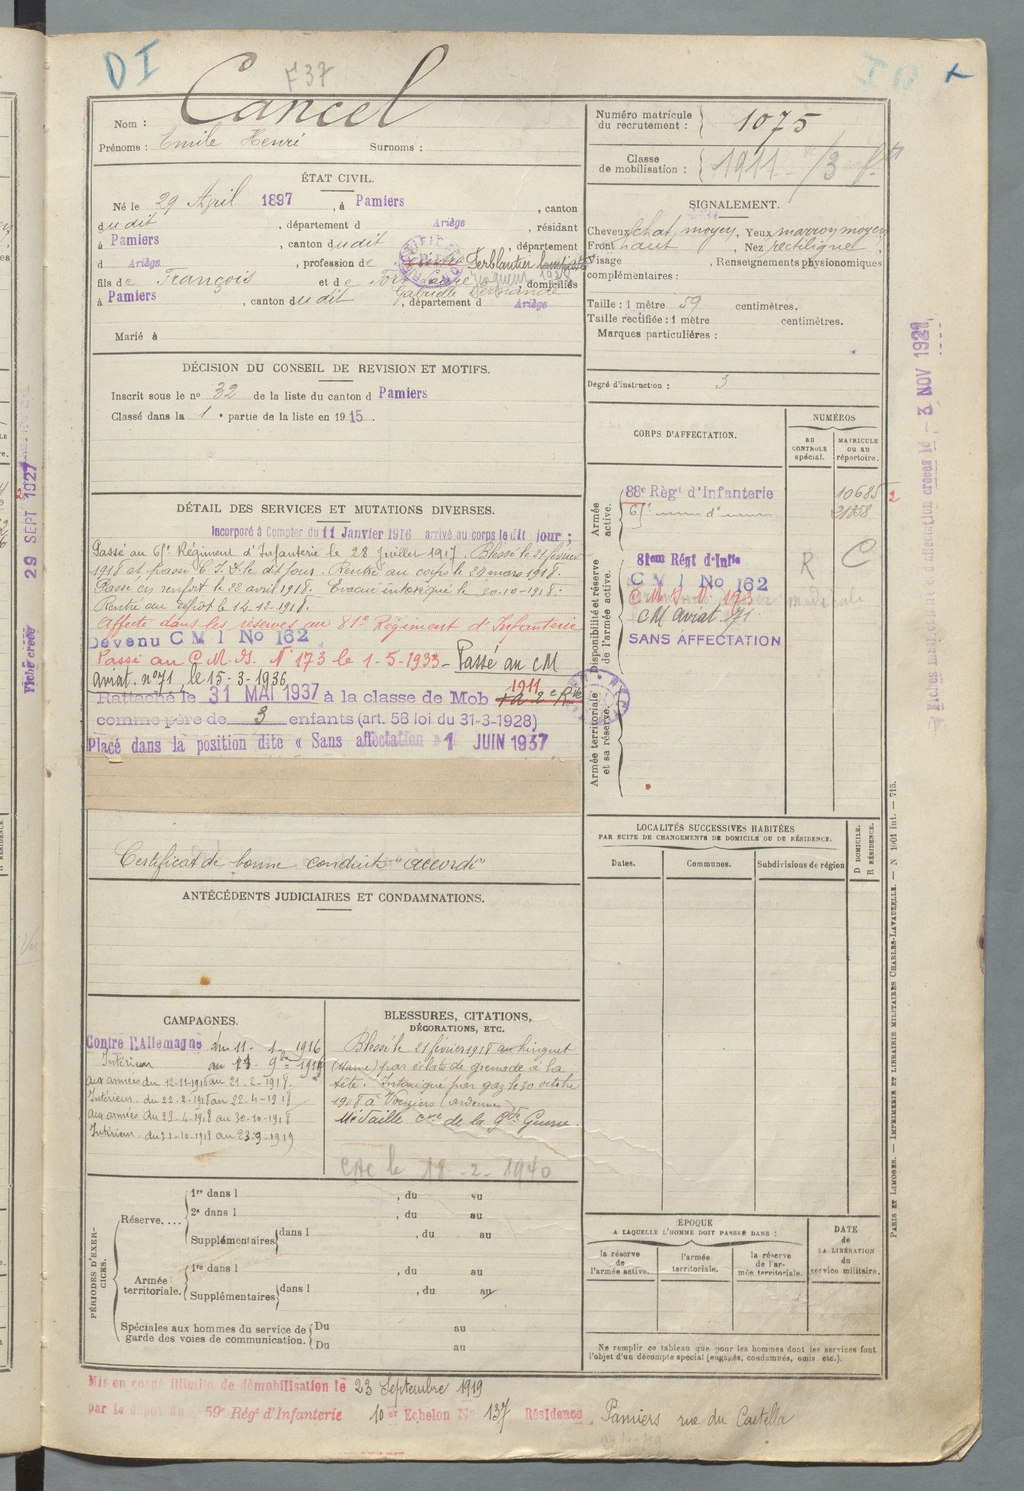 DI
F37
Nom : Cancel
Prénoms : Emile Henri Surnoms :
ÉTAT CIVIL.
Né le 29 April 1897, à Pamiers, canton
dudit, département d Ariège, résidant
à Pamiers, canton dudit, département
d Ariège, profession de Ferblantier
fils de François et de domiciliés
à Pamiers, canton dudit, département d Ariège
Marié à
DÉCISION DU CONSEIL DE REVISION ET MOTIFS.
Inscrit sous le no 32 de la liste du canton d Pamiers
Classé dans la 1e partie de la liste en 1915.
DÉTAIL DES SERVICES ET MUTATIONS DIVERSES.
Incorporé à Compter du 11 Janvier 1916 arrivé au corps le dit jour ;
Passé au 6e Régiment d'Infanterie le 28 juillet 1917. Blessé le 21 février
1918 et passé C.I.D. le dit jour. Rentré au corps le 29 mars 1918.
Passé en renfort le 22 avril 1918. Evacué intoxiqué le 30-10-1918.
Rentré au dépôt le 14-12-1918.
Affecté dans les réserves au 81e Régiment d'Infanterie
Devenu C M I No 162
Passé au C.M.I. N° 173 le 1-5-1933 - Passé au CM
aviat. n°71, le 15-3-1936
Rattaché le 31 MAI 1937 à la classe de Mob 1911
comme père de 3 enfants (art. 58 loi du 31-3-1928)
Placé dans la position dite « Sans affectation » 1 JUIN 1937
Certificat de bonne conduite "accordé"
ANTÉCÉDENTS JUDICIAIRES ET CONDAMNATIONS.
CAMPAGNES.
Contre l'Allemagne du 11-1-1916
au 23 9bre 1919
Intérieur
aux armées du 12-11-1916 au 21-2-1918.
Intérieur du 22-2-1918 au 22-4-1918
aux armées du 23-4-1918 au 30-10-1918
Intérieur du 31-10-1918 au 23-9-1919
BLESSURES, CITATIONS,
DÉCORATIONS, ETC.
Blessé le 21 février 1918 au
(Marne) par éclats de grenade à la
tête. Intoxiqué par gaz le 30 octobre
1918 à Vouziers (ardennes)
Médaille cve de la Gde Guerre.
le 18-2-1940
PÉRIODES D'EXERCICES.
Réserve....
1re dans l , du au
2e dans l , du au
Supplémentaires dans l , du au
Armée territoriale.
1re dans l , du au
Supplémentaires dans l , du au
Spéciales aux hommes du service de garde des voies de communication.
Du au
Du au
Numéro matricule du recrutement : 1075
Classe de mobilisation : 1911
SIGNALEMENT.
Cheveux chat. moyen, Yeux marron moyen
Front haut, Nez rectiligne
Visage , Renseignements physionomiques
complémentaires :
Taille : 1 mètre 59 centimètres.
Taille rectifiée : 1 mètre centimètres.
Marques particulières :
Degré d'instruction : 3
CORPS D'AFFECTATION.
NUMÉROS
AU CONTROLE spécial.
MATRICULE OU AU répertoire.
Armée active.
88e Régt d'Infanterie 10685
6e d°
Disponibilité et réserve de l'armée active.
81em Régt d'Infie R C
C M I No 162
C M I N° 173
CM aviat. 71
SANS AFFECTATION
Armée territoriale et sa réserve.
LOCALITÉS SUCCESSIVES HABITÉES
PAR SUITE DE CHANGEMENTS DE DOMICILE OU DE RÉSIDENCE.
Dates.
Communes.
Subdivisions de région
D DOMICILE.
R RÉSIDENCE.
ÉPOQUE
A LAQUELLE L'HOMME DOIT PASSER DANS :
la réserve de l'armée active.
l'armée territoriale.
la réserve de l'armée territoriale.
DATE de LA LIBÉRATION du service militaire.
Ne remplir ce tableau que pour les hommes dont les services font
l'objet d'un décompte spécial (engagés, condamnés, omis etc.).
Mis en congé illimité de démobilisation le 23 Septembre 1919
par le dépôt du 59e Régt d'Infanterie 10er Echelon No 137 Résidence Pamiers rue du Castella
PARIS ET LIMOGES. — IMPRIMERIE ET LIBRAIRIE MILITAIRES CHARLES-LAVAUZELLE. — N 1001 int. — 715.
3 NOV 1927
29 SEPT 1927